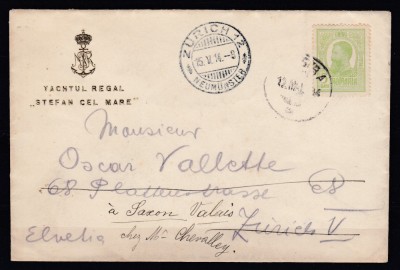 YACHTUL REGAL
„ŞTEFAN CEL MARE"
ZÜRICH 12
15.V.14.-9
NEUMÜNSTER
Monsieur
Oscar Vallette
68. Plattenstrasse
à Saxon Valais
Zürich V
Elvetia
chez Mr Chevalley.